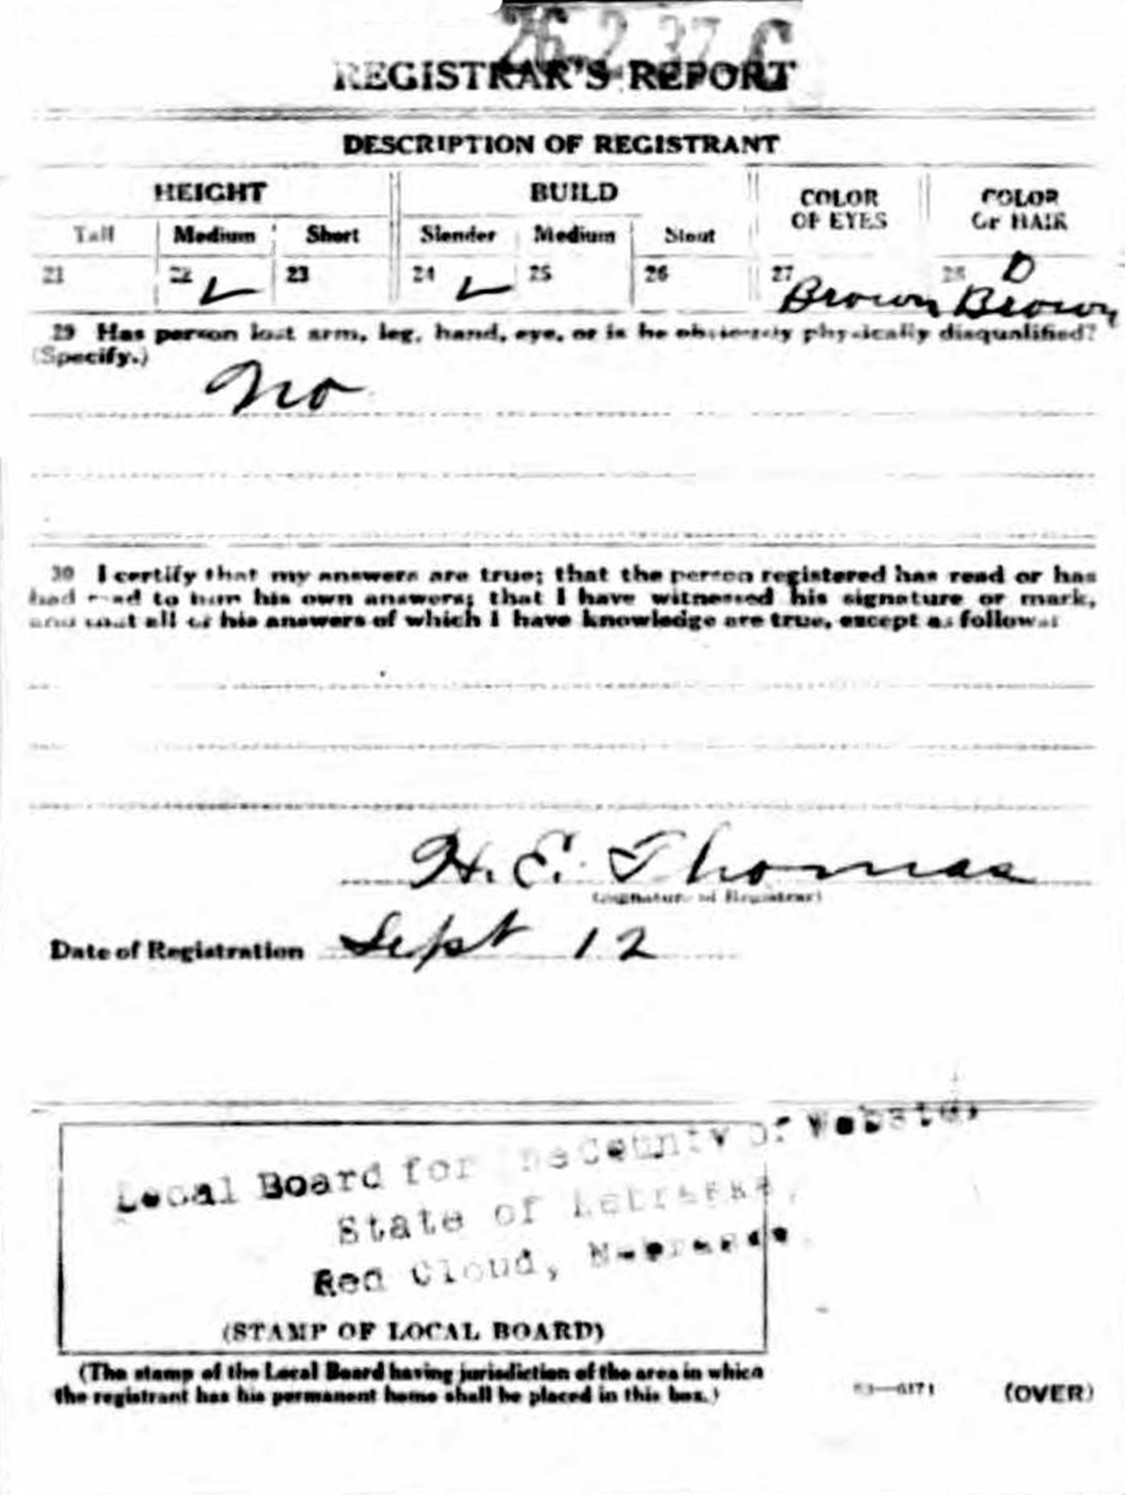 26-2-37 C
REGISTRAR'S REPORT
DESCRIPTION OF REGISTRANT
HEIGHT BUILD COLOR OF EYES COLOR OF HAIR
Tall Medium Short Slender Medium Stout
21 22 ✓ 23 24 ✓ 25 26 27 Brown 28 D Brown
29 Has person lost arm, leg, hand, eye, or is he obviously physically disqualified?
(Specify.)
No
30 I certify that my answers are true; that the person registered has read or has
had read to him his own answers; that I have witnessed his signature or mark,
and that all of his answers of which I have knowledge are true, except as follows:
H. E. Thomas
(Signature of Registrar)
Date of Registration Sept 12
Local Board for County of Webster,
State of Nebraska,
Red Cloud, Nebraska.
(STAMP OF LOCAL BOARD)
(The stamp of the Local Board having jurisdiction of the area in which
the registrant has his permanent home shall be placed in this box.)
03—6171 (OVER)